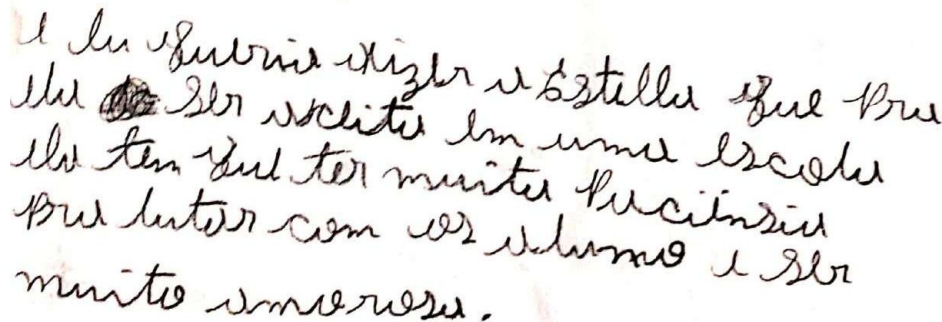 e eu queria dizer a Estella que pra
ela ser aseita em uma escola
ela tem que ter muita paciênsia
pra lutar com os alumo e ser
muito amorosa.